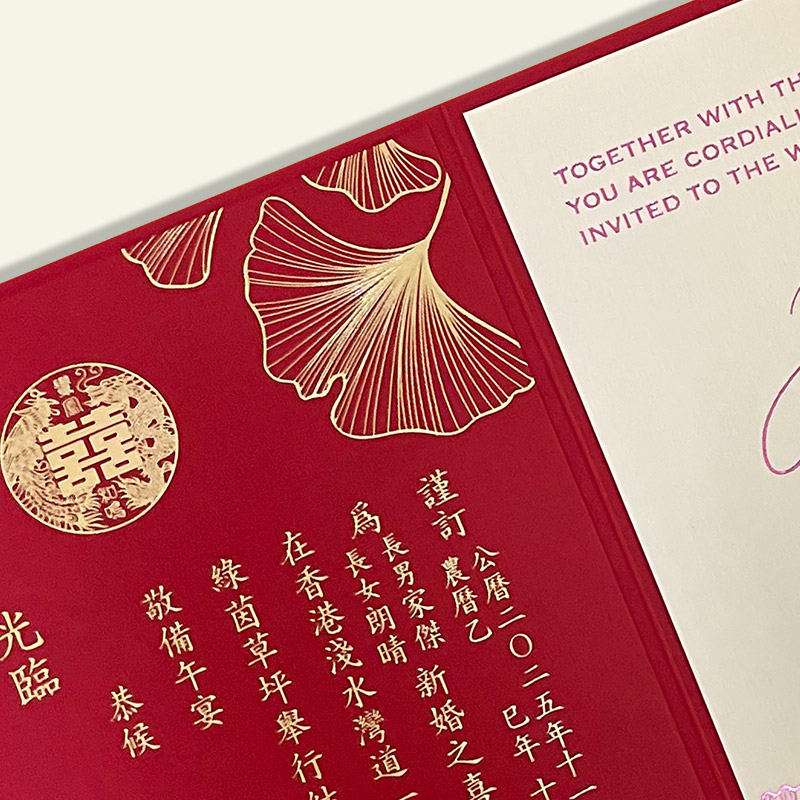 謹訂
公曆二〇二五年十一
農曆乙巳年十
爲
長男家傑
長女朗晴
新婚之喜
在香港淺水灣道一
綠茵草坪舉行
敬備午宴
恭候
光臨
囍
TOGETHER WITH TH
YOU ARE CORDIALL
INVITED TO THE W